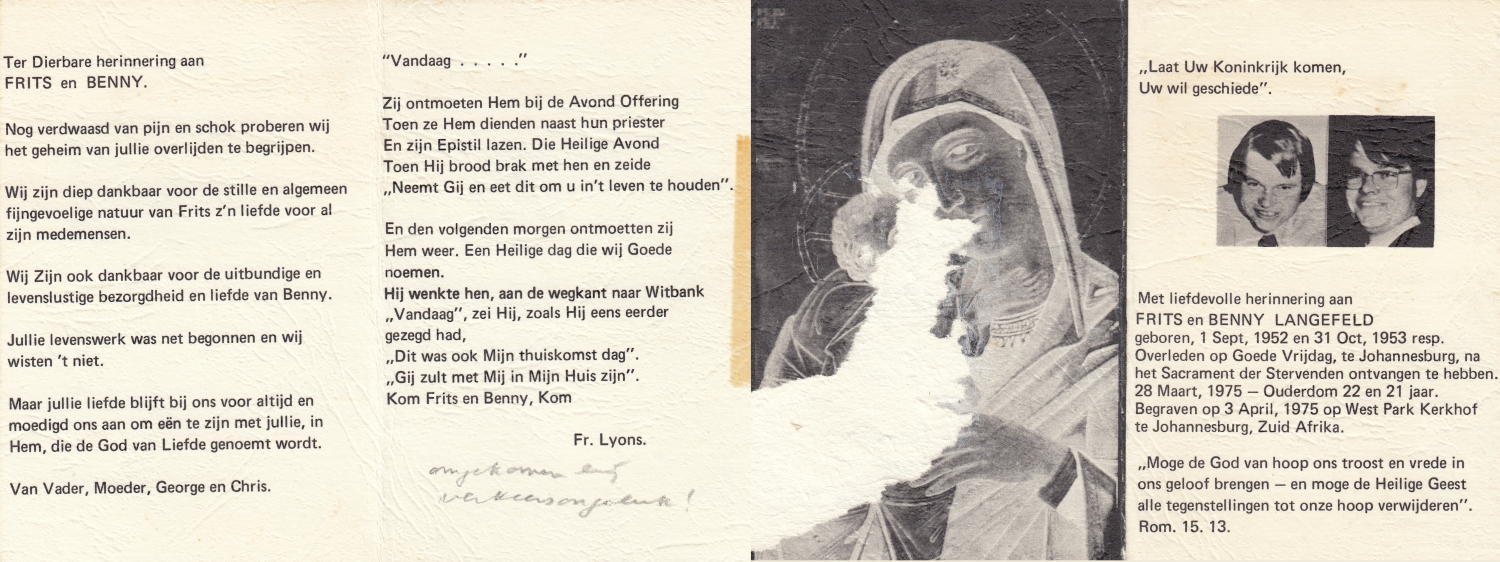 Ter Dierbare herinnering aan
FRITS en BENNY.
Nog verdwaasd van pijn en schok proberen wij
het geheim van jullie overlijden te begrijpen.
Wij zijn diep dankbaar voor de stille en algemeen
fijngevoelige natuur van Frits z'n liefde voor al
zijn medemensen.
Wij Zijn ook dankbaar voor de uitbundige en
levenslustige bezorgdheid en liefde van Benny.
Jullie levenswerk was net begonnen en wij
wisten 't niet.
Maar jullie liefde blijft bij ons voor altijd en
moedigd ons aan om eën te zijn met jullie, in
Hem, die de God van Liefde genoemt wordt.
Van Vader, Moeder, George en Chris.
"Vandaag . . . . ."
Zij ontmoeten Hem bij de Avond Offering
Toen ze Hem dienden naast hun priester
En zijn Epistil lazen. Die Heilige Avond
Toen Hij brood brak met hen en zeide
„Neemt Gij en eet dit om u in't leven te houden".
En den volgenden morgen ontmoetten zij
Hem weer. Een Heilige dag die wij Goede
noemen.
Hij wenkte hen, aan de wegkant naar Witbank
„Vandaag", zei Hij, zoals Hij eens eerder
gezegd had,
„Dit was ook Mijn thuiskomst dag".
„Gij zult met Mij in Mijn Huis zijn".
Kom Frits en Benny, Kom
Fr. Lyons.
omgekomen
verkeersongeluk!
„Laat Uw Koninkrijk komen,
Uw wil geschiede".
Met liefdevolle herinnering aan
FRITS en BENNY LANGEFELD
geboren, 1 Sept, 1952 en 31 Oct, 1953 resp.
Overleden op Goede Vrijdag, te Johannesburg, na
het Sacrament der Stervenden ontvangen te hebben.
28 Maart, 1975 — Ouderdom 22 en 21 jaar.
Begraven op 3 April, 1975 op West Park Kerkhof
te Johannesburg, Zuid Afrika.
„Moge de God van hoop ons troost en vrede in
ons geloof brengen — en moge de Heilige Geest
alle tegenstellingen tot onze hoop verwijderen".
Rom. 15. 13.